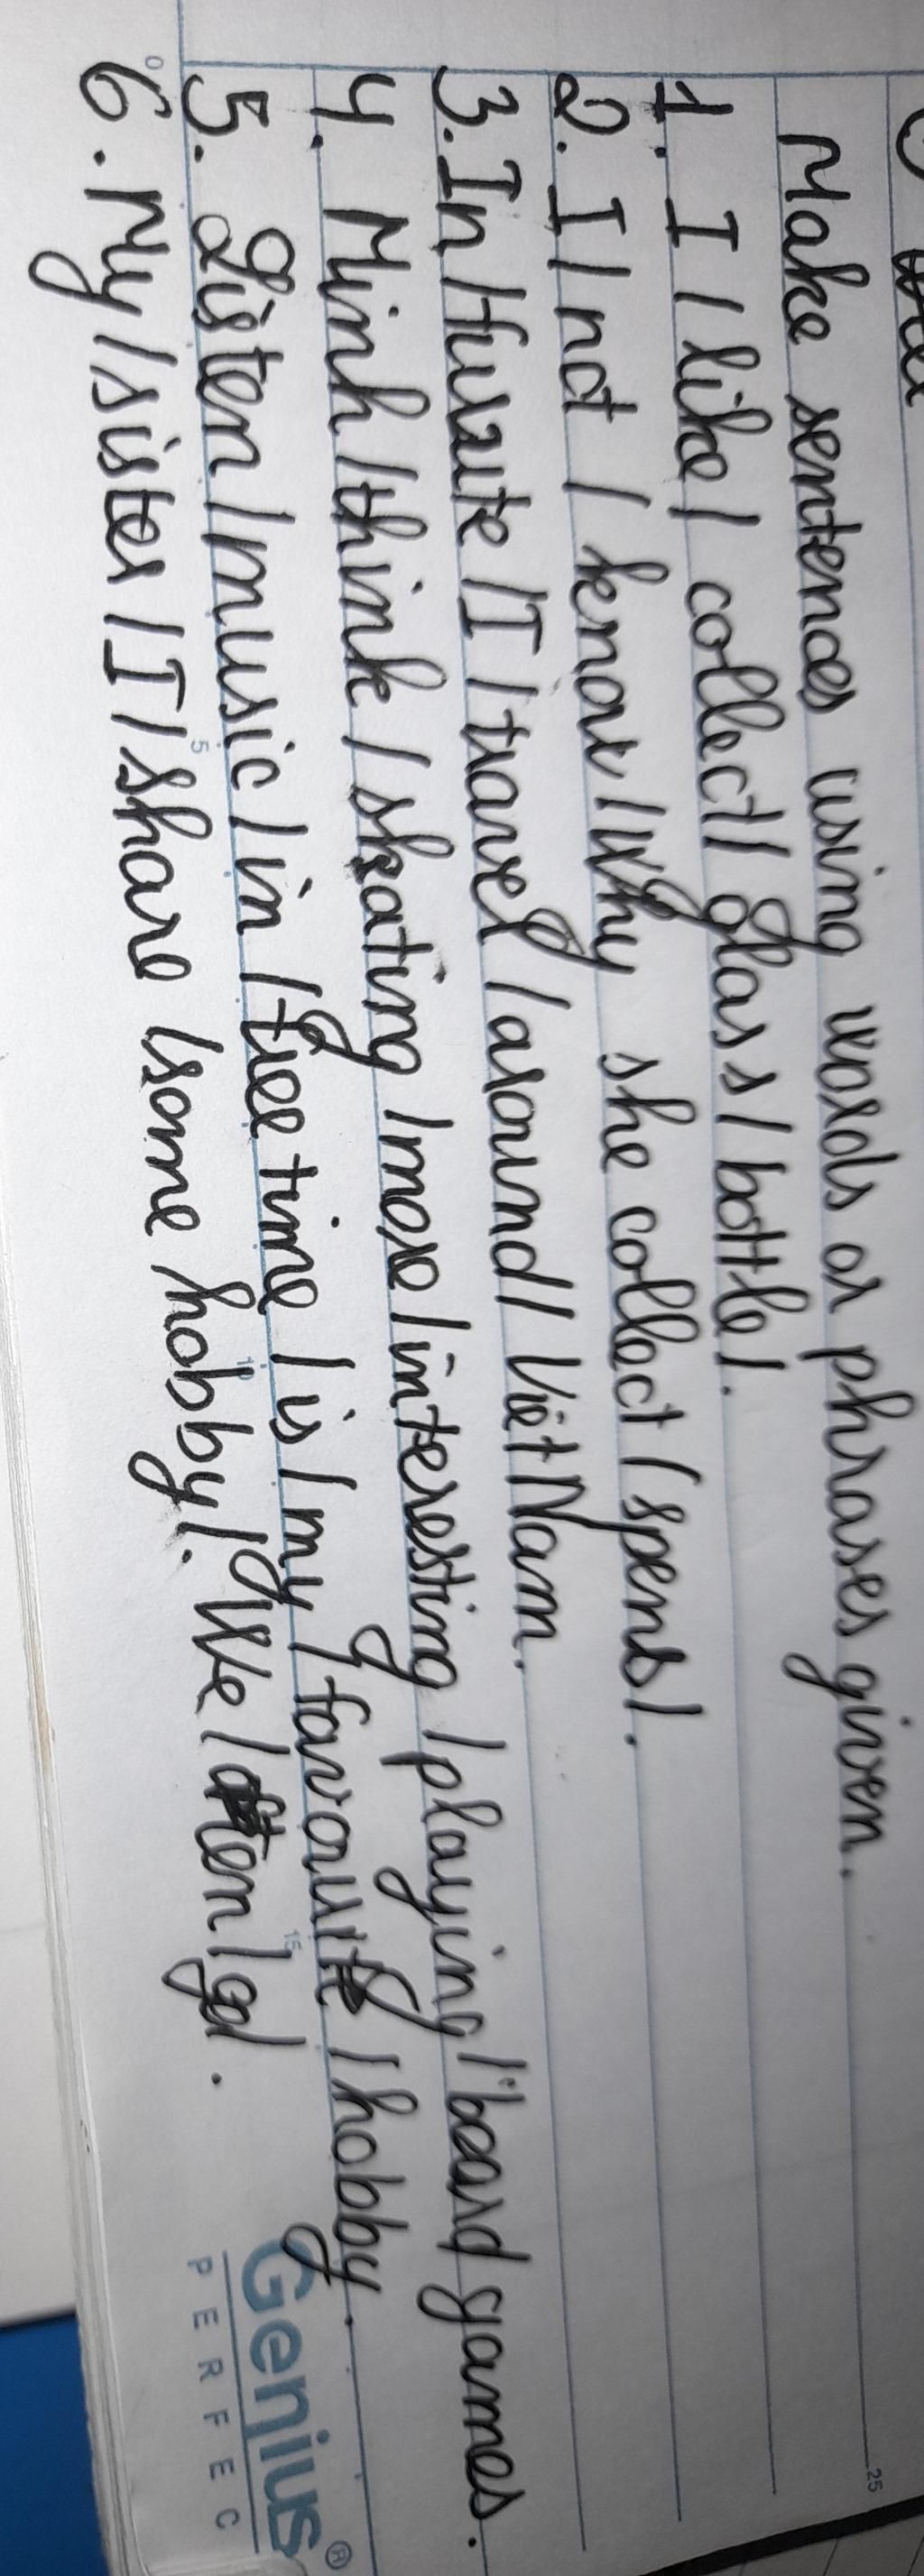 Make sentences using words or phrases given.
1. I / like / collect / glass / bottle /.
2. I / not / know / Why she collect / spens /.
3. In / future / I / travel / around / Việt Nam.
4. Minh / think / skating / more / interesting / playing / board games.
5. Listen / music / in / free time / is / my / favourite / hobby.
6. My / sister / I / share / some hobby /. We / often / go /.
Genius®
PERFEC
0
5
10
15
25